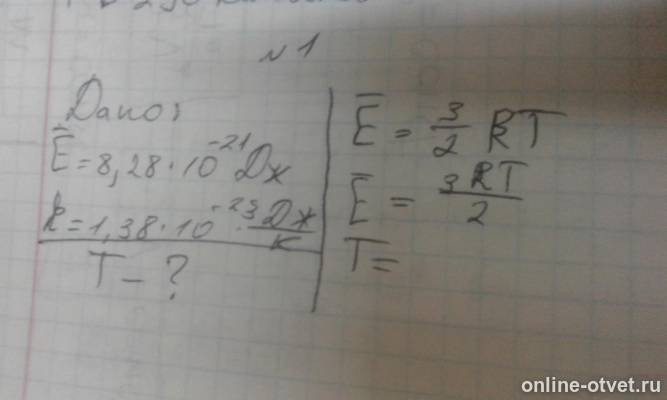 №1
Дано:
Ē = 8,28·10⁻²¹ Дж
k = 1,38·10⁻²³ Дж/К
T - ?
Ē = 3/2 kT
Ē = 3kT/2
T =
online-otvet.ru